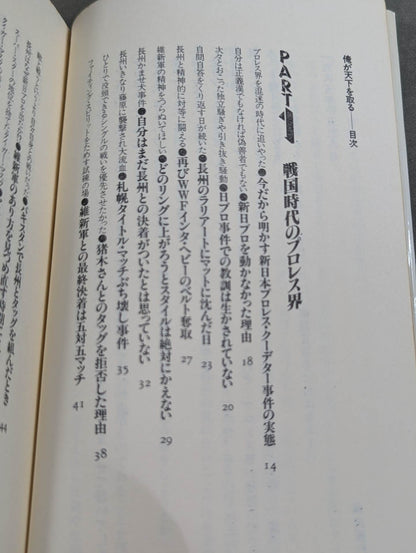 俺が天下を取る——目次
PART 1 戦国時代のプロレス界
プロレス界を混迷の時代に追いやった●今だから明かす新日本プロレス・クーデター事件の実態 14
自分は正義漢でもなければ偽善者でもない●新日プロを動かなかった理由 18
次々とおこった独立騒ぎや引き抜き騒動●日プロ事件での教訓は生かされていない 20
自問自答をくり返す日が続いた●長州のラリアートにマットに沈んだ日 23
長州と精神的に対等に闘える●再びWWFインタ・ヘビーのベルト奪取 27
維新軍の精神をつらぬいてほしい●どのリングに上がろうとスタイルは絶対にかえない 29
長州かませ犬事件●自分はまだ長州との決着がついたとは思っていない 32
長州いきなり藤原に襲撃され大流血●札幌タイトル・マッチぶち壊し事件 35
ひとりで没頭できるシングルの戦いを優先させたかった●猪木さんとのタッグを拒否した理由 38
ファイティング・スピリットをためす試練の場●維新軍との最終決着は五対五マッチ 41
パキスタンで長州とタッグを組んだとき
維新軍のあり方を見つめ直す時期 44